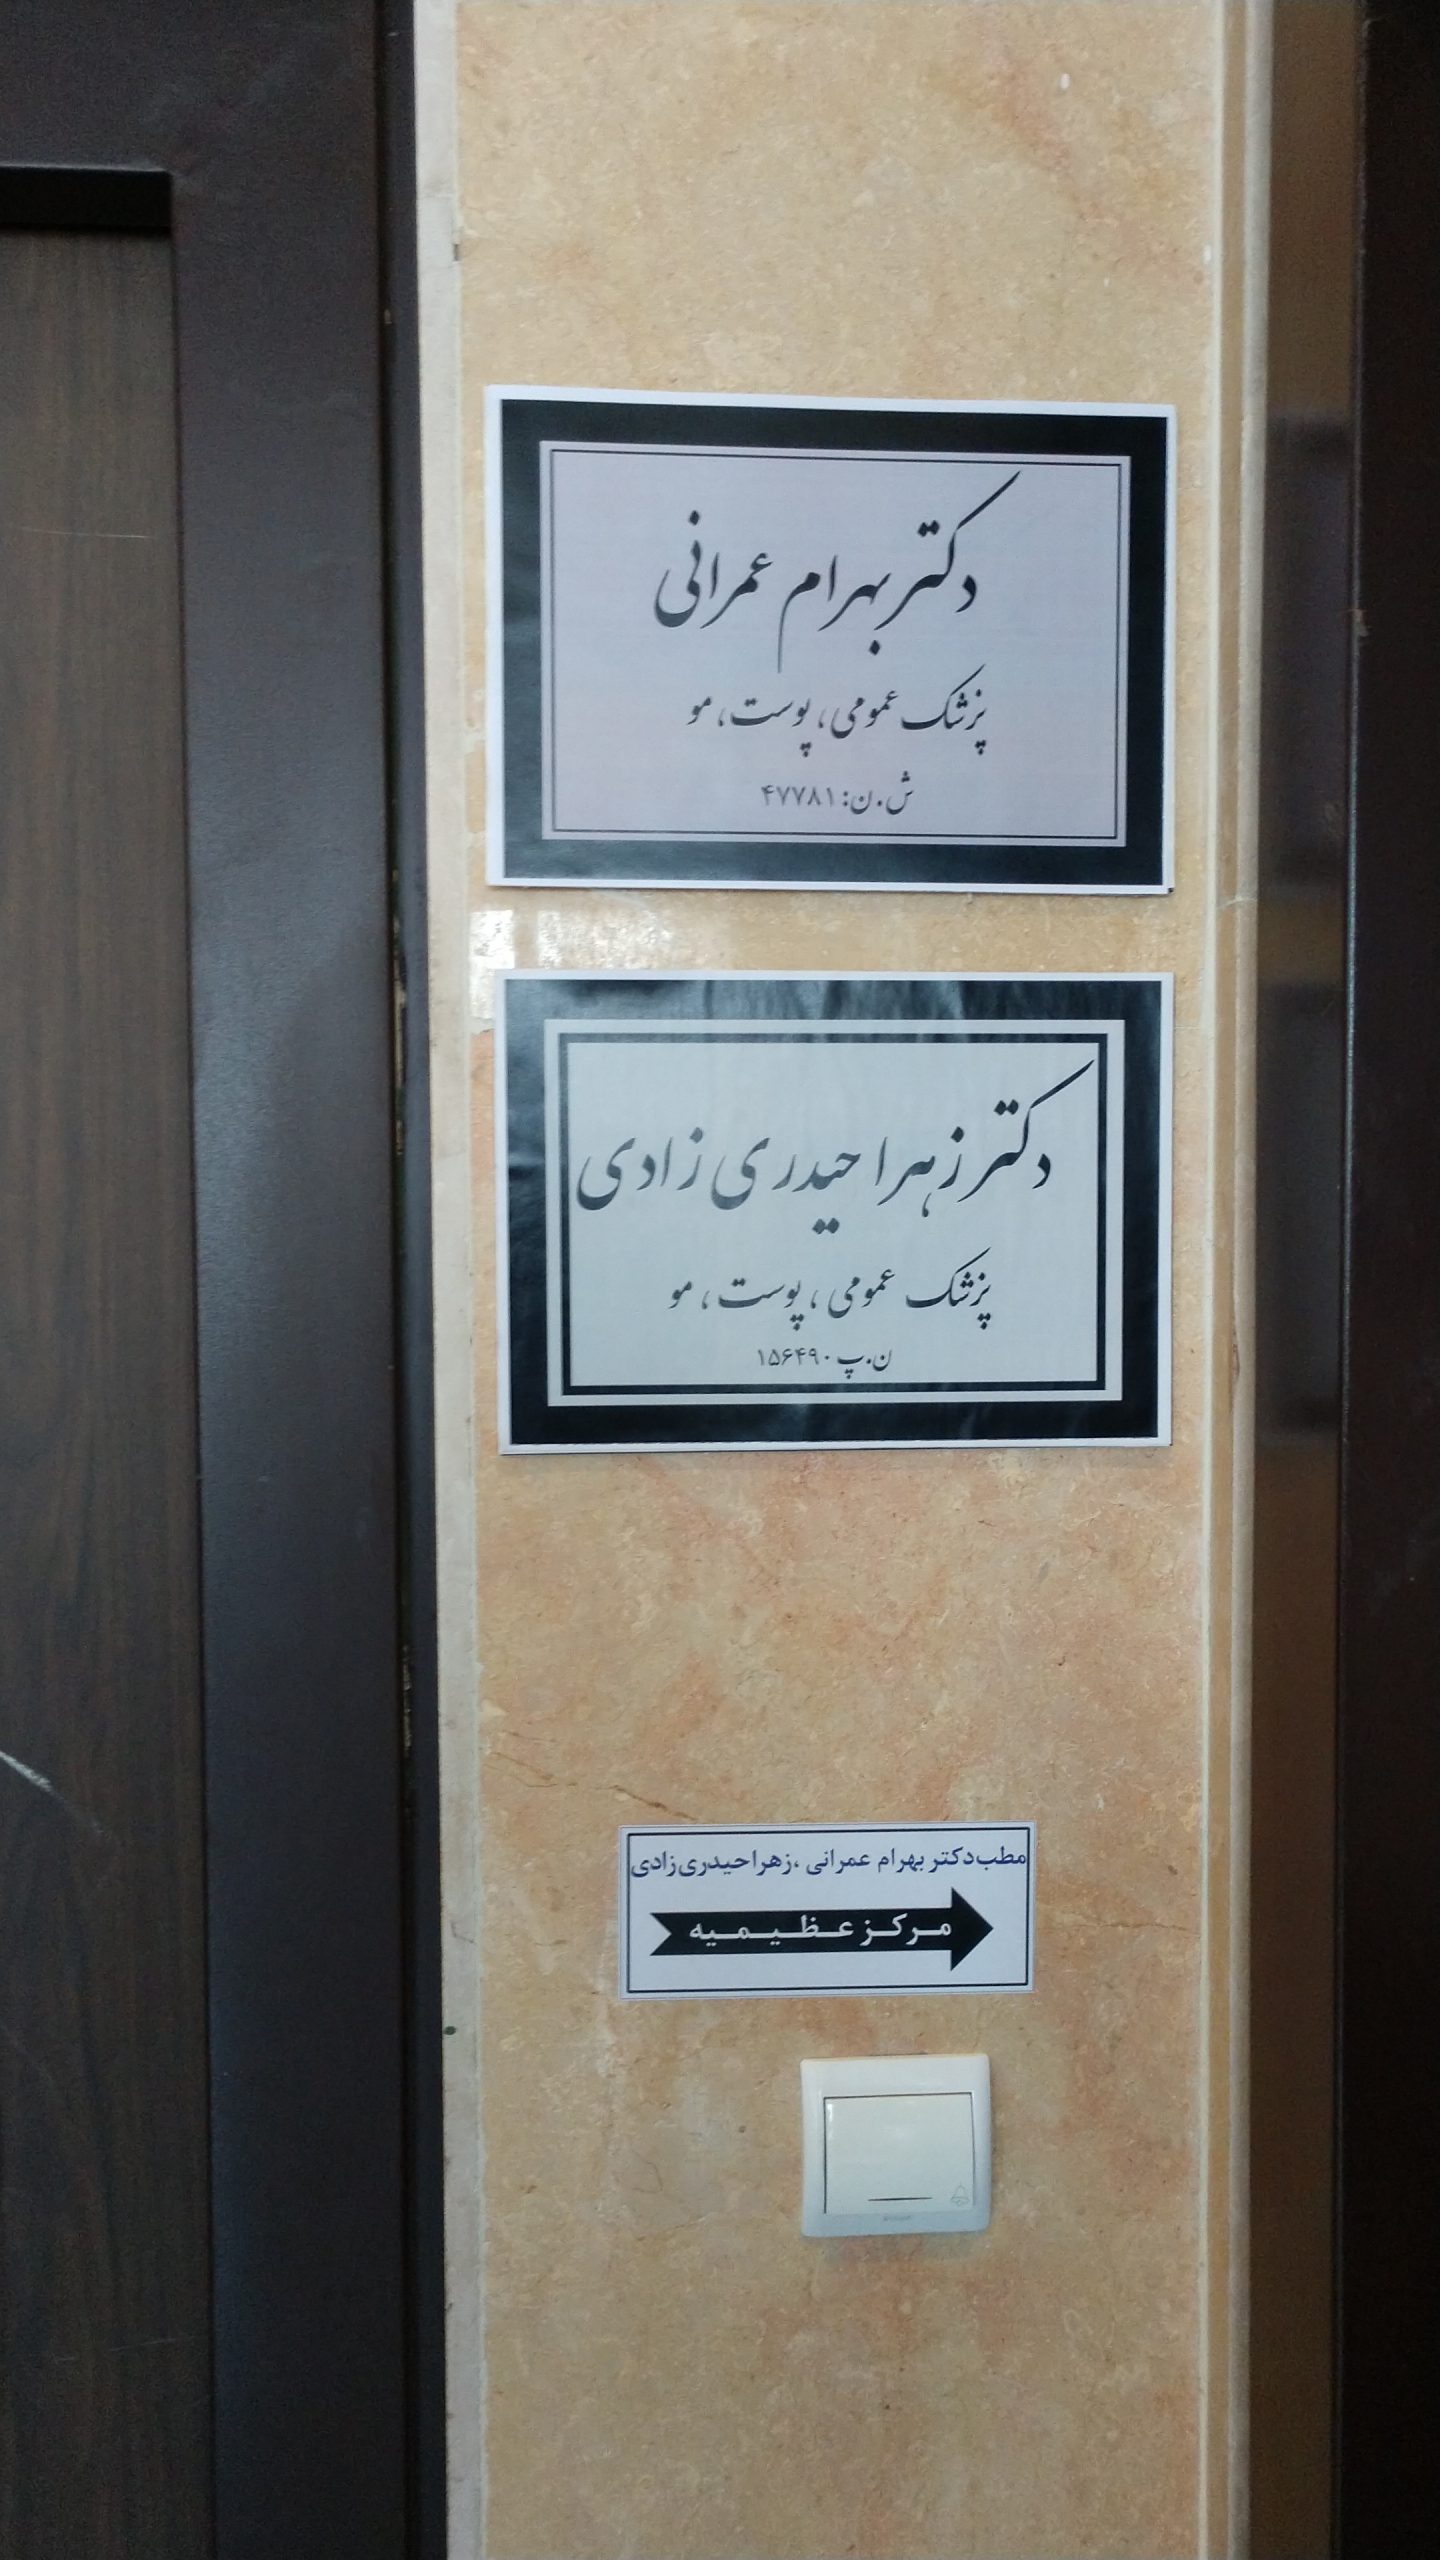 دکتر بهرام عمرانی
پزشک عمومی، پوست، مو
ش.ن: ۴۷۷۸۱
دکتر زهرا حیدری زادی
پزشک عمومی، پوست، مو
ن.پ ۱۵۶۴۹۰
مطب دکتر بهرام عمرانی ،زهرا حیدری‌زادی
مرکز عظیمیه